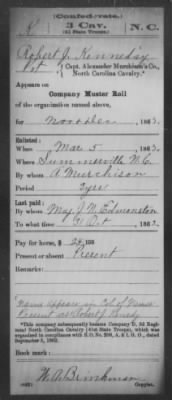 (Confederate.)
K 3 Cav. N.C.
(41 State Troops.)
Robert J. Kenneday
Pvt, Capt. Alexander Murchison's Co.,
North Carolina Cavalry.*
Appears on
Company Muster Roll
of the organization named above,
for Nov & Dec, 1863.
Enlisted:
When Mar 5, 1863.
Where Summerville N.C.
By whom A Murchison
Period 3 yrs
Last paid:
By whom Maj. J. N. Edmonston
To what time 31 Oct, 1863.
Pay for horse, $
Present or absent Present
Remarks:
Name appears in Col of Names
Present as Robert
*This company subsequently became Company
Regiment North Carolina Cavalry (41st State Troops), which was
organized in compliance with S. O. No.
September 3, 1863.
Book mark:
W. A. Brinkman
Copyist.